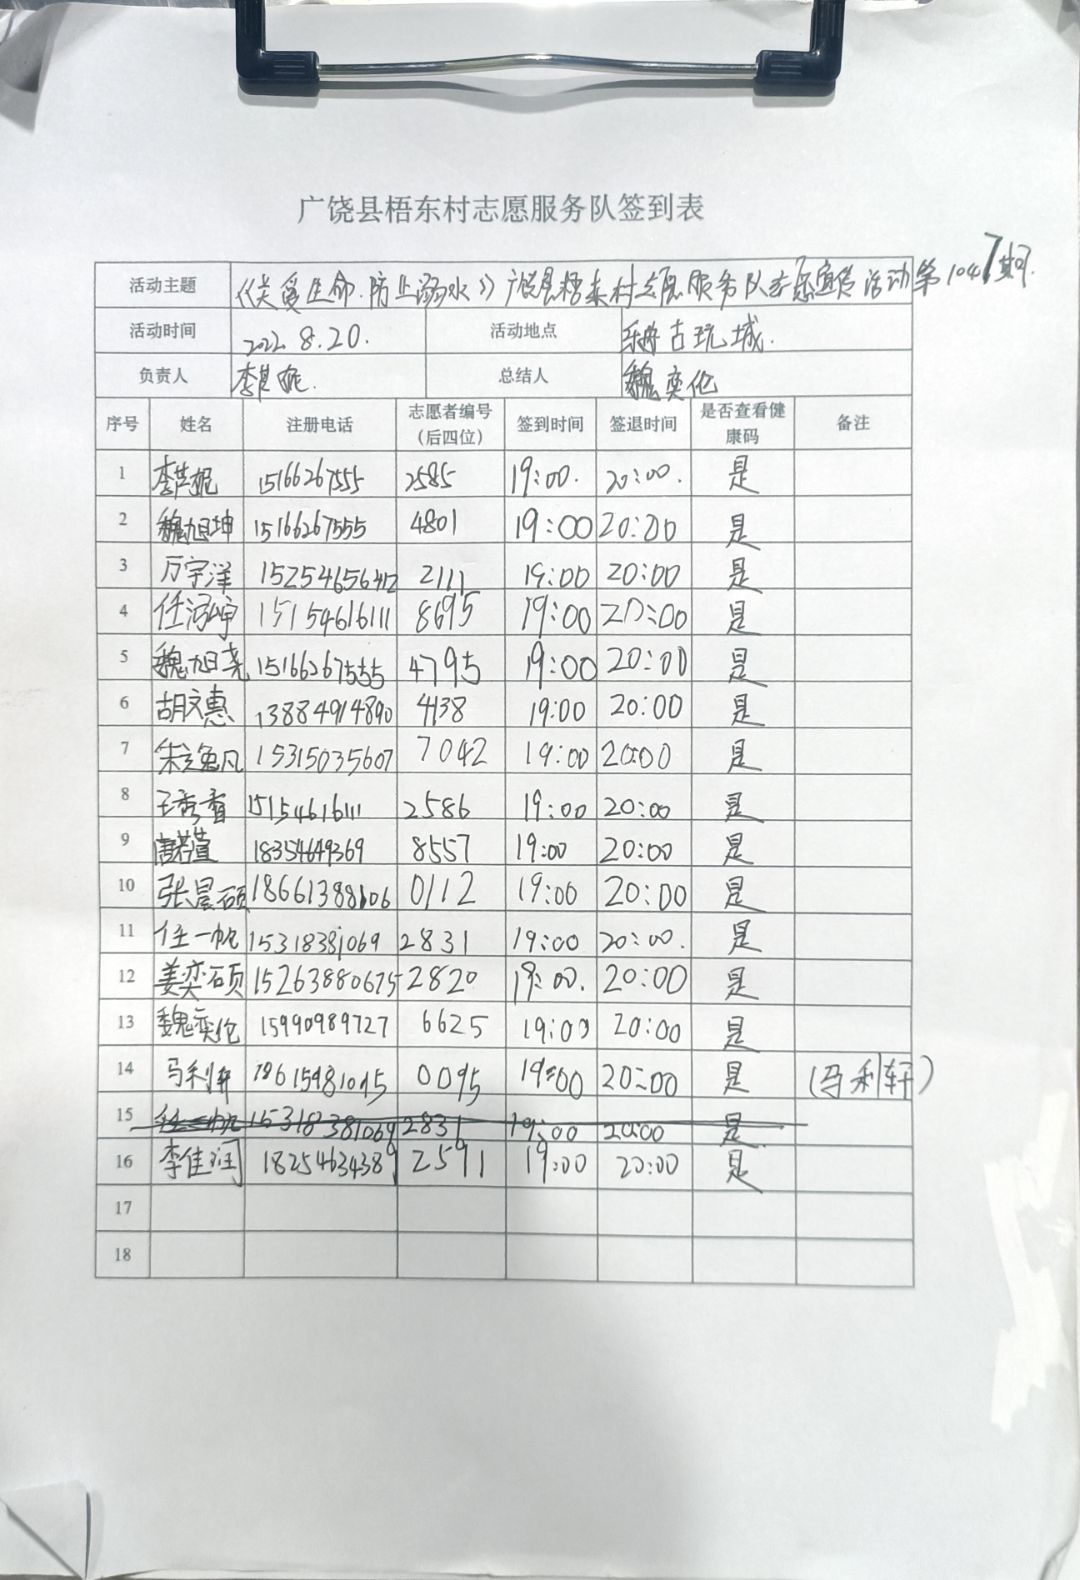 广饶县梧东村志愿服务队签到表
活动主题 《关爱生命.防止溺水》广饶县梧东村志愿服务队志愿宣传活动第1047期.
活动时间 2022.8.20. 活动地点 乐安古玩城.
负责人 李芦妮. 总结人 魏奕伦
序号 姓名 注册电话 志愿者编号（后四位） 签到时间 签退时间 是否查看健康码 备注
1 李芦妮 15166267555 2585 19:00. 20:00. 是
2 魏旭坤 15166267555 4801 19:00 20:00 是
3 万宇洋 15254656412 2111 19:00 20:00 是
4 任泓宇 15154616111 8695 19:00 20:00 是
5 魏旭尧 15166267555 4795 19:00 20:00 是
6 胡文惠 13884914890 4138 19:00 20:00 是
7 朱逸凡 15315035607 7042 19:00 20:00 是
8 王秀香 15154616111 2586 19:00 20:00 是
9 唐若萱 18354649369 8557 19:00 20:00 是
10 张晨硕 18661388606 0112 19:00 20:00 是
11 任一帆 15318381069 2831 19:00 20:00. 是
12 姜奕硕 15263880675 2820 19:00. 20:00 是
13 魏奕伦 15990989727 6625 19:00 20:00 是
14 马利轩 18615981095 0095 19:00 20:00 是 (马利轩)
15 任一帆 15318381069 2831 19:00 20:00 是
16 李佳润 18254634389 2591 19:00 20:00 是
17
18